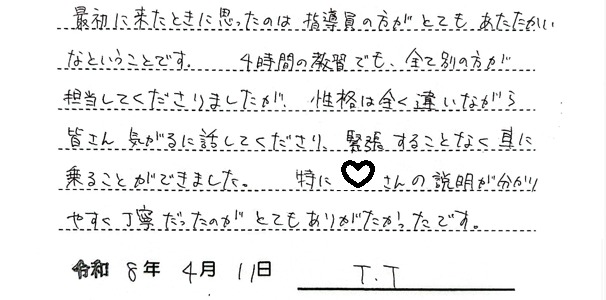 最初に来たときに思ったのは 指導員の方がとてもあたたかい
なということです。 4時間の教習でも、全て別の方が
担当してくださりましたが、性格は全く違いながら
皆さん気がるに話してくださり 緊張することなく車に
乗ることができました。 特に ♡ さんの説明が分かり
やすく丁寧だったのがとてもありがたかったです。
令和 8年 4月 11日 T.T